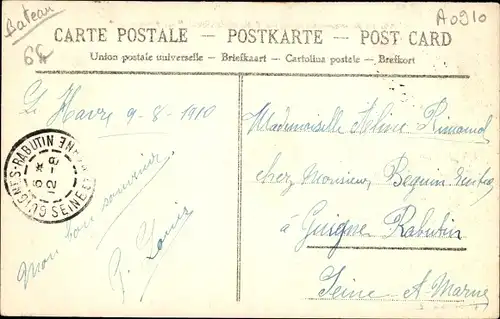 Bateau
6f
A0910
CARTE POSTALE – POSTKARTE – POST CARD
Union postale universelle – Briefkaart – Cartolina postale – Brefkort
Le Havre 9-8-1910
Mon bon souvenir
P. Louis
GUIGNES-RABUTIN
6 *
12 -8
SEINE ET
Mademoiselle Rimaud
chez Monsieur
à Guigne Rabutin
Seine & Marne